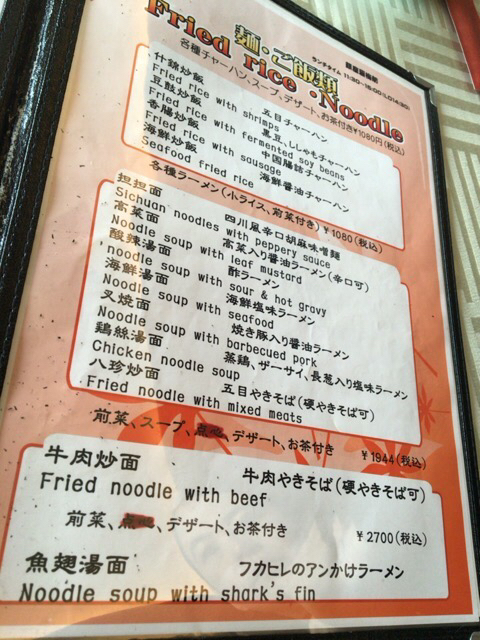 麺・ご飯類
Fried rice・Noodle
ランチタイム 11:30-15:00(L.O14:30)
各種チャーハン、スープ、デザート、お茶付き¥1080円(税込)
什錦炒飯 五目チャーハン
Fried rice with shrimps
豆鼓炒飯 黒豆、ししゃもチャーハン
Fried rice with fermented soy beans
香腸炒飯 中国腸詰チャーハン
Fried rice with sausage
海鮮炒飯 海鮮醤油チャーハン
Seafood fried rice
各種ラーメン(小ライス、前菜付き)¥1080(税込)
担担面 四川風辛口胡麻味噌麺
Sichuan noodles with peppery sauce
高菜面 高菜入り醤油ラーメン(辛口可)
Noodle soup with leaf mustard
酸辣湯面 酢ラーメン
noodle soup with sour & hot gravy
海鮮湯面 海鮮塩味ラーメン
Noodle soup with seafood
叉焼面 焼き豚入り醤油ラーメン
Noodle soup with barbecued pork
鶏絲湯面 蒸鶏、ザーサイ、長葱入り塩味ラーメン
Chicken noodle soup
八珍炒面 五目やきそば(硬やきそば可)
Fried noodle with mixed meats
前菜、スープ、デザート、お茶付き ¥1944(税込)
牛肉炒面 牛肉やきそば(硬やきそば可)
Fried noodle with beef
前菜、デザート、お茶付き ¥2700(税込)
魚翅湯面 フカヒレのアンかけラーメン
Noodle soup with shark's fin